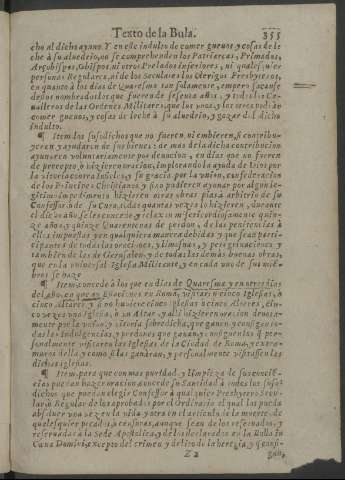 Texto de la Bula. 355
cho al dicho ayuno. Y en este indulto de comer gueuos y cosas de le
che à su aluedrio, no se comprehenden los Patriarcas, Primados,
Arçobispos, Obispos, ni otros Prelados inferiores, ni qualesquier
personas Regulares, ni de los Seculares los Clerigos Presbyteros,
en quanto à los dias de Quaresma tan solamente, empero sacanse
destos nombrados los que fueren de sesenta años, y todos los Ca-
ualleros de las Ordenes Militares, que los vnos, y los otros podràn
comer gueuos, y cosas de leche à su aluedrio, y gozar del dicho
indulto.
¶ Item los susodichos que no fueren, ni embieren, ni contribu-
yeren y ayudaren de sus bienes: de mas de la dicha contribucion
ayunaren voluntariamente por deuocion, en dias que no fueren
de precepto, o hizieren oracion, implorando la ayuda de Dios por
la vitoria contra infieles, y su gracia por la vnion, confederacion
de los Principes Christianos y sino pudieren ayunar por algun le-
gitimo impedimento hizieren otras obras pias à arbitrio de su
Confessor o de su Cura, todas quantas vezes lo hizieren, durante
el dicho año se les concede y relaxa misericordiosamente quin-
ze años, y quinze Quarentenas de perdon, de las penitencias à
ellos impuestas y en qualquier manera deuidas y que sean parti-
cipantes de todas las oraciones, limosnas, y peregrinaciones y
tambien de los de Gerusalen, y de todas las demàs buenas obras,
que en la vniuersal Iglesia Militante, y en cada vno de sus miē-
bros se haze.
¶ Item, concede à los que en dias de Quaresma y en otros dias
del año, en que ay Estaciones en Roma, visitaren cinco Iglesias, ò
cinco Altares, y si no huuiere cinco Iglesias ò cinco Altares, cin-
co vezes vna Iglesia, ò vn Altar, y alli hizieren oracion deuota-
mente por la vnion, y vitoria sobredicha, que ganen, y consigan to-
das las indulgencias, y perdones que ganan, y consiguen los que per-
sonalmente visitaren las Iglesias de la Ciudad de Roma, y extra-
muros della, y como si las ganàran, y personalmente visitassen las
dichas Iglesias.
¶ Item, para que con mas puridad, y limpieza de sus concien-
cias puedan hazer oracion concede su Santidad à todos los suso-
dichos que puedan elegir Confessor à qualquier Presbytero Secu-
lar, ò Regular de los aprobados por el Ordinario el qual los pueda
absoluer vna vez en la vida y otra en el articulo de la muerte, de
qualesquier pecados y censuras, aunque sean de los reseruados, y
reseruadas à la Sede Apostolica, y de los declarados en la Bulla in
Cœna Domini, excepto del crimen y delito de la heregia, y que consi-
Z 2